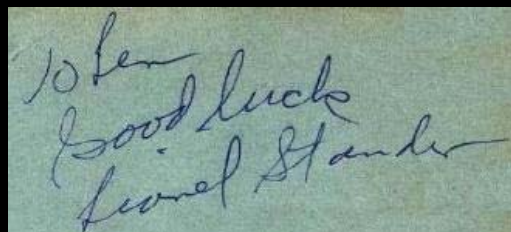 To Ben
Good luck
Lionel Stander